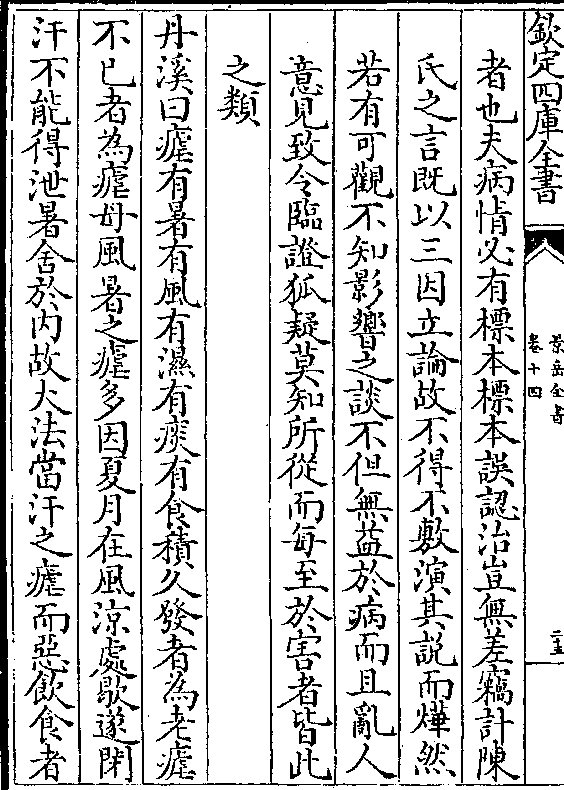 欽定四庫全書
景岳全書
卷十四
二十五
者也夫病情必有標本標本誤認治豈無差竊計陳
氏之言既以三因立論故不得不敷演其説而燁然
若有可觀不知影響之談不但無益於病而且亂人
意見致令臨證狐疑莫知所從而每至於害者皆此
之類
丹溪曰瘧有暑有風有濕有痰有食積久發者為老瘧
不已者為瘧母風暑之瘧多因夏月在風涼處歇遂閉
汗不能得泄暑舍於内故大法當汗之瘧而惡飲食者